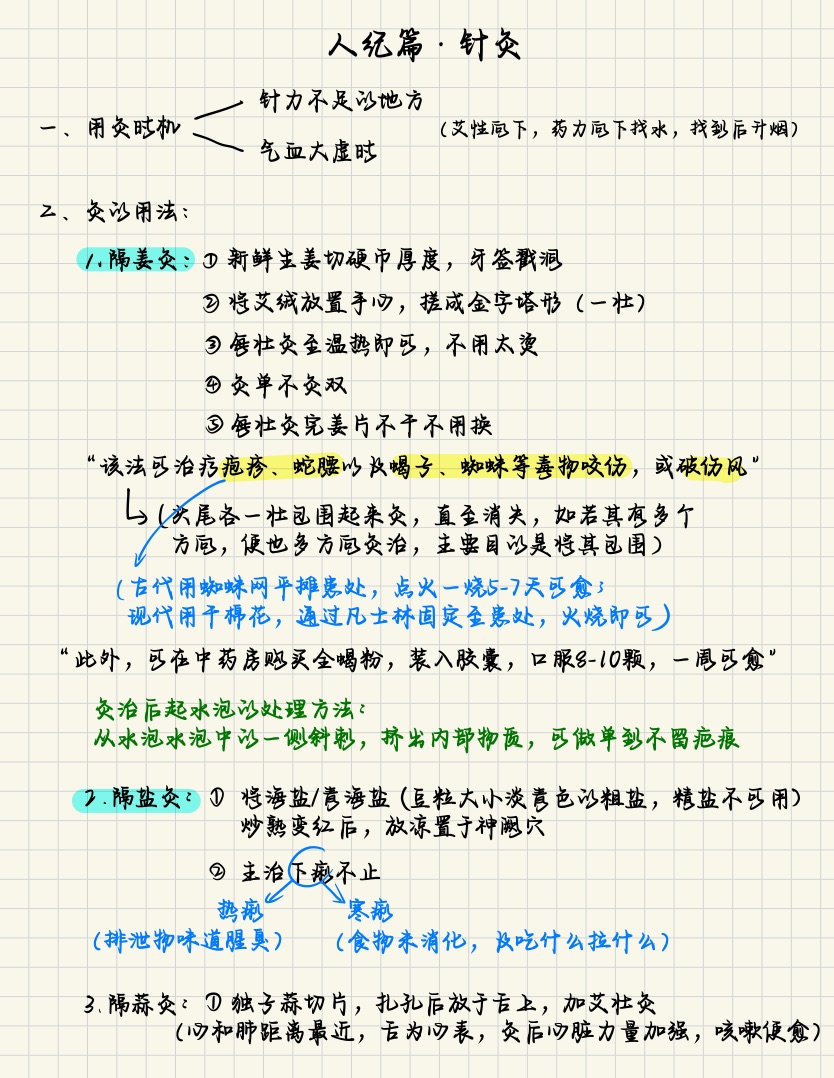 人纪篇·针灸
针力不足的地方
一、用灸时机
(艾性向下，药力向下找水，找到后升烟)
气血大虚时
二、灸的用法：
1.隔姜灸：① 新鲜生姜切硬币厚度，牙签戳洞
② 将艾绒放置手心，搓成金字塔形（一壮）
③ 每壮灸至温热即可，不用太烫
④ 灸单不灸双
⑤ 每壮灸完姜片不干不用换
“该法可治疗疱疹、蛇腰以及蝎子、蜘蛛等毒物咬伤，或破伤风”
(头尾各一壮包围起来灸，直至消失，如若其有多个
方向，便也多方向灸治，主要目的是将其包围)
(古代用蜘蛛网平摊患处，点火一烧5-7天可愈；
现代用干棉花，通过凡士林固定至患处，火烧即可)
“此外，可在中药房购买全蝎粉，装入胶囊，口服8-10颗，一周可愈”
灸治后起水泡的处理方法：
从水泡水泡中的一侧斜刺，挤出内部物质，可做单到不留疤痕
2.隔盐灸：① 将海盐/青海盐（豆粒大小淡青色的粗盐，精盐不可用）
炒熟变红后，放凉置于神阙穴
② 主治下痢不止
热痢 寒痢
(排泄物味道腥臭) (食物未消化，及吃什么拉什么)
3.隔蒜灸：① 独子蒜切片，扎孔后放于舌上，加艾壮灸
(心和肺距离最近，舌为心表，灸后心脏力量加强，咳嗽便愈)